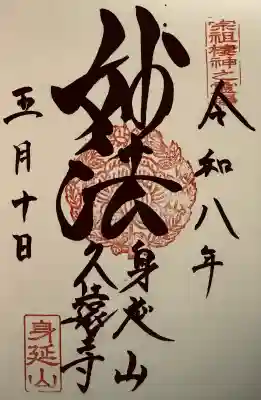 宗祖棲神之
令和八年
妙法
身延山
久遠寺
五月十日
身延山